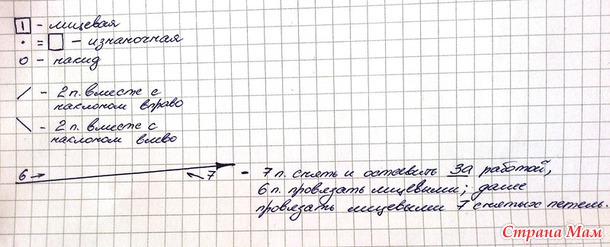 | - лицевая
• = □ - изнаночная
о - накид
/ - 2п. вместе с
наклоном вправо
\ - 2п. вместе с
наклоном влево
6 → 7 - 7п. снять и оставить за работой,
6п. провязать лицевыми; далее
провязать лицевыми 7 снятых петель.
Страна Мам